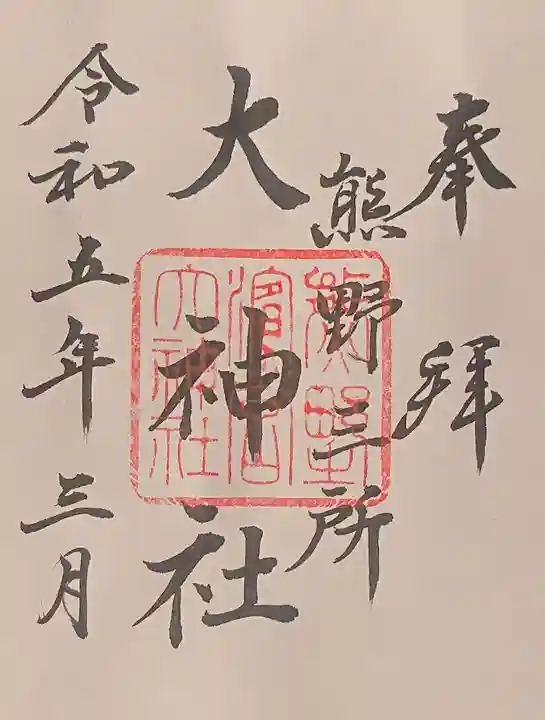 奉拜
熊野三所
大神社
令和五年三月
熊野
濱宮
大神社